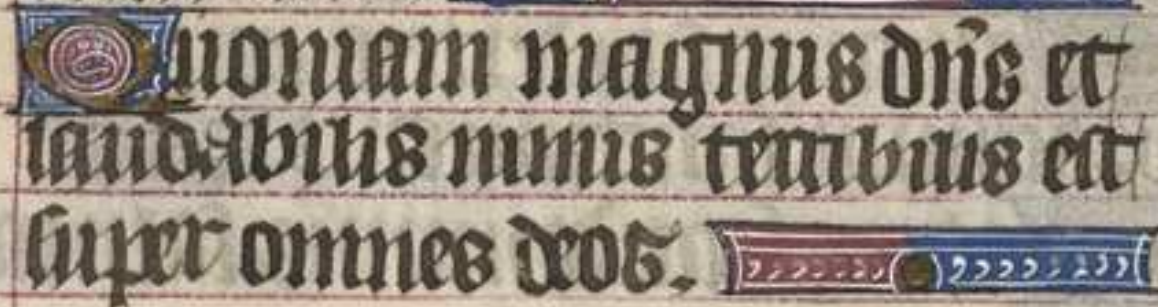 Quoniam magnus dn̄s et
laudabilis nimis terribilis est
super omnes deos.